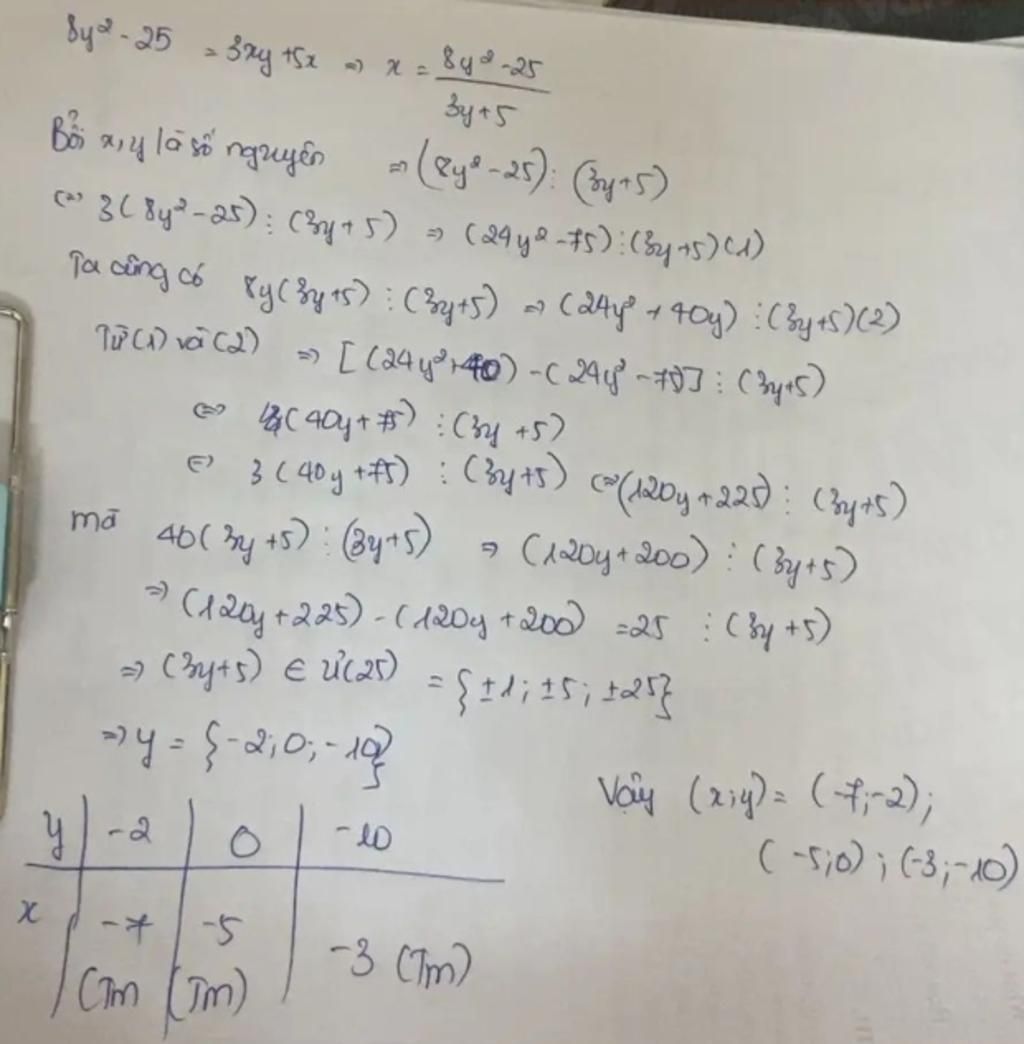 8y² - 25 = 3xy + 5x ⇒ x = (8y² - 25)/(3y + 5)
Bởi x, y là số nguyên ⇒ (8y² - 25) ⋮ (3y + 5)
⇔ 3(8y² - 25) ⋮ (3y + 5) ⇒ (24y² - 75) ⋮ (3y + 5) (1)
Ta cũng có 8y(3y + 5) ⋮ (3y + 5) ⇒ (24y² + 40y) ⋮ (3y + 5) (2)
Từ (1) và (2) ⇒ [(24y² + 40) - (24y² - 75)] ⋮ (3y + 5)
⇔ (40y + 75) ⋮ (3y + 5)
⇔ 3(40y + 75) ⋮ (3y + 5) ⇔ (120y + 225) ⋮ (3y + 5)
mà 40(3y + 5) ⋮ (3y + 5) ⇒ (120y + 200) ⋮ (3y + 5)
⇒ (120y + 225) - (120y + 200) = 25 ⋮ (3y + 5)
⇒ (3y + 5) ∈ Ư(25) = {±1; ±5; ±25}
⇒ y = {-2; 0; -10}
y | -2 | 0 | -10
x | -7 | -5 | -3 (Tm)
(Tm | (Tm)
Vậy (x; y) = (-7; -2);
(-5; 0); (-3; -10)